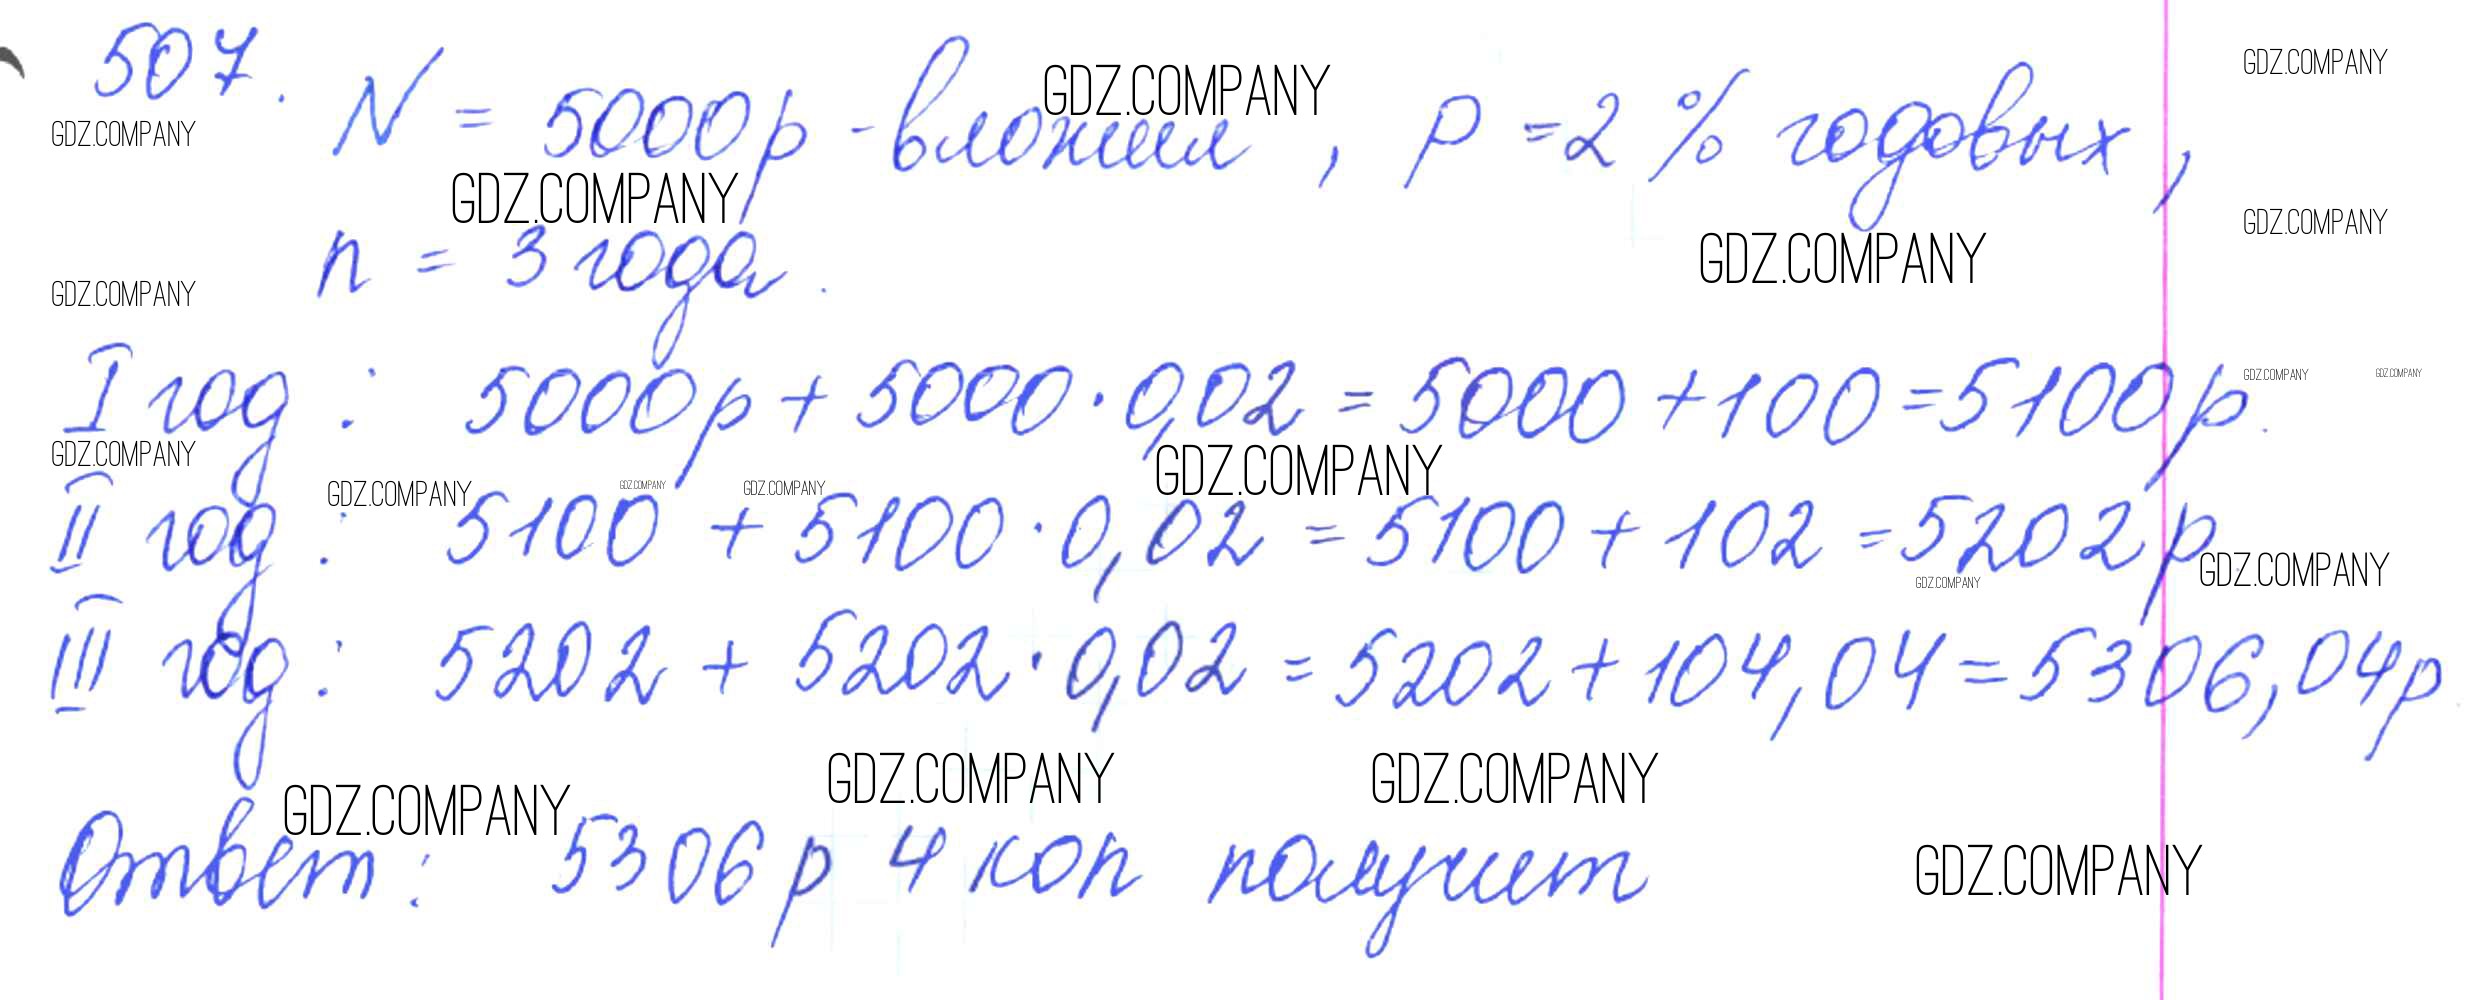 507. N = 5000р - вложил, р = 2 % годовых,
GDZ.COMPANY GDZ.COMPANY GDZ.COMPANY
GDZ.COMPANY
n = 3 года.
GDZ.COMPANY GDZ.COMPANY
GDZ.COMPANY
I год: 5000р + 5000 · 0,02 = 5000 + 100 = 5100р.
GDZ.COMPANY GDZ.COMPANY
GDZ.COMPANY GDZ.COMPANY
GDZ.COMPANY GDZ.COMPANY GDZ.COMPANY
II год: 5100 + 5100 · 0,02 = 5100 + 102 = 5202р
GDZ.COMPANY GDZ.COMPANY
III год: 5202 + 5202 · 0,02 = 5202 + 104,04 = 5306,04р.
GDZ.COMPANY GDZ.COMPANY GDZ.COMPANY
Ответ: 5306 р 4 коп получит
GDZ.COMPANY